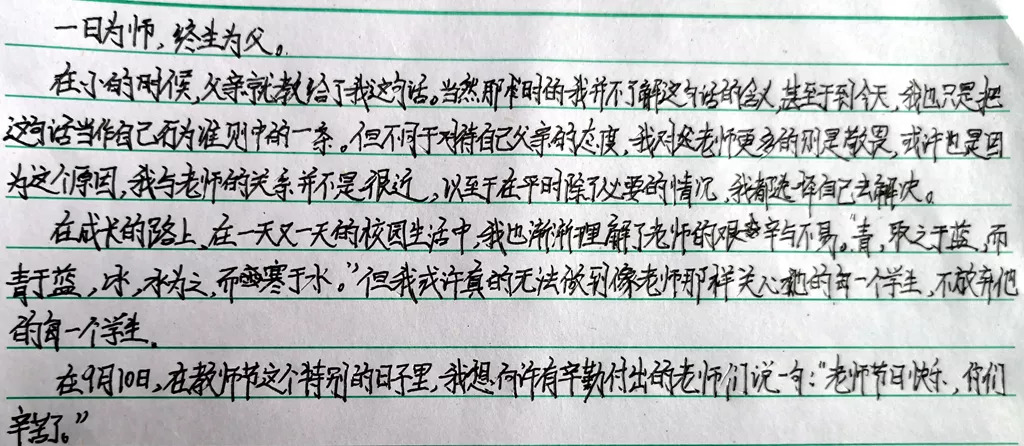 一日为师,终生为父。
在小的时候,父亲就教给了我这句话。当然那时的我并不了解这句话的含义,甚至于到今天,我也只是把
这句话当作自己行为准则中的一条。但不同于对待自己父亲的态度,我对老师更多的则是敬畏,或许也是因
为这个原因,我与老师的关系并不是很近,以至于在平时除了必要的情况,我都选择自己去解决。
在成长的路上,在一天又一天的校园生活中,我也渐渐理解了老师的艰辛与不易。"青,取之于蓝,而
青于蓝,冰,水为之,而寒于水。"但我或许真的无法做到像老师那样关心他的每一个学生,不放弃他
的每一个学生.
在9月10日,在教师节这个特别的日子里,我想向所有辛勤付出的老师们说一句:"老师节日快乐,你们
辛苦了。"